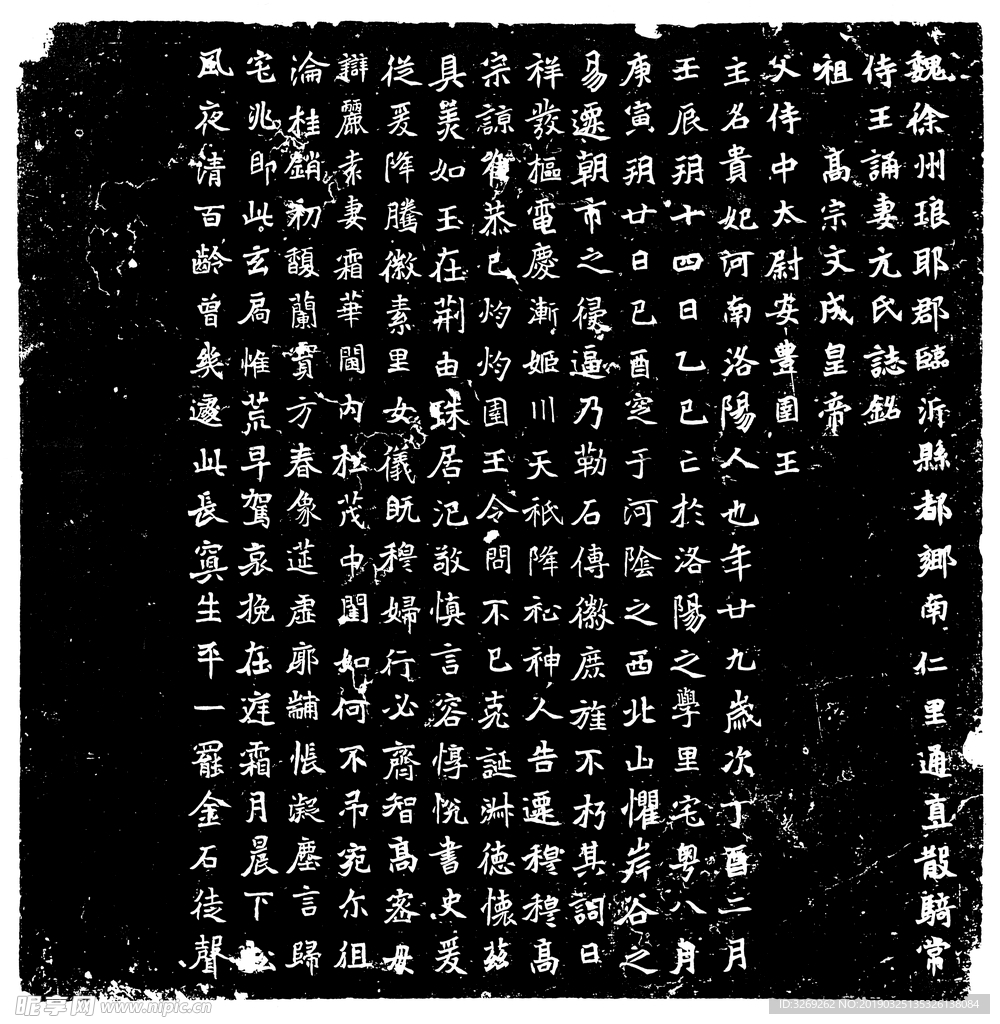 魏徐州琅耶郡臨沂縣都鄉南仁里通直散騎常
侍王誦妻元氏誌銘
祖 高宗文成皇帝
父侍中太尉安豊圉王
主名貴妃河南洛陽人也年廿九歲次丁酉二月
壬辰朔十四日乙巳亡於洛陽之學里宅粤八月
庚寅朔廿日己酉窆于河陰之西北山懼岸谷之
易遷朝市之侵逼乃勒石傳徽庶旌不朽其詞曰
祥發樞電慶漸姬川天祇降祉神人告遷穆穆高
宗諒唯恭己灼灼圉王令問不已克誕淋德懷茲
具美如玉在荆由珠居汜敬慎言容惇悅書史爰
從爰降騰徽素里女儀既穆婦行必齊智高密母
辯麗袁妻霜華閫内松茂中闈如何不弔宛尔徂
淪桂銷初馥蘭實方春像筵虛廓黼悵凝塵言歸
宅兆即此玄扃惟荒早駕哀挽在庭霜月晨下松
風夜清百齡曾幾遽此長冥生平一罷金石徒聲
昵享网 www.nipic.cn
ID:3269262 NO:20190325135326138084